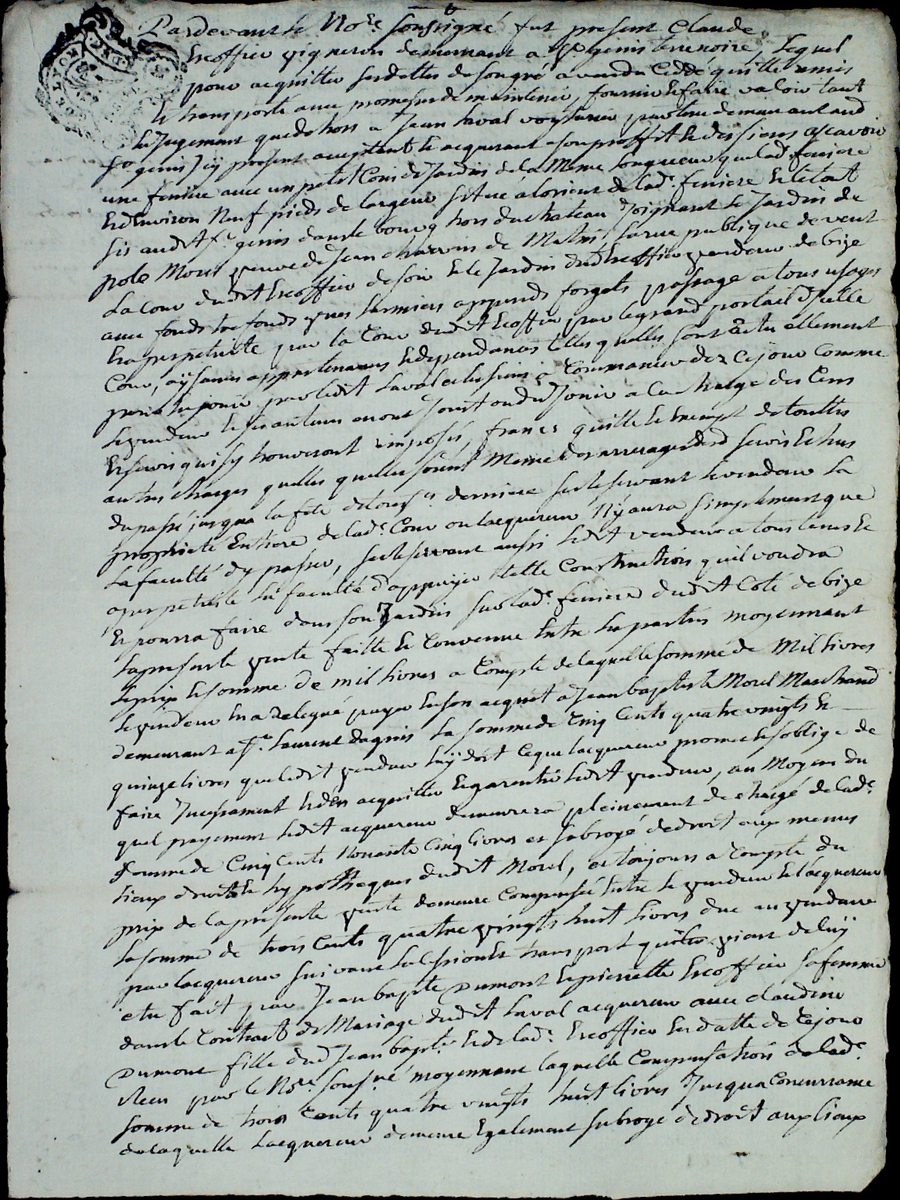 Pardevant le No.re soussigné fut present Claude
Escoffier vigneron demeurant a St genis terrenoire, Lequel
pour acquitter ses dettes de son gré a vendu Ceddé quitté remis
et transporté avec promesse de maintenir, fournir et faire valoir tant
En Jugement que dehors a Jean Laval voyturier par terre demeurant aud
St genis Icy present acceptant et acquerant a son proffit et des siens ascavoir
une feniere avec un petit Coin de Jardin de la Meme longueur que lad. feniere
Et d'Environ Neuf pieds de largeur situé a lorient de lad. feniere Et le tout
sis audit St genis dans le bourg hors du chateau Joignant le Jardin de
pole Morel veuve de Jean de Matin, la rue publique de vent
La Cour dudit Escoffier de soir Et le Jardin dud Escoffier vendeur de bize
avec fonds tres fonds forgets passage a tous usages
Et a perpetuité par la Cour dudit Escoffier par le grand portail d'icelle
Cour, aysances appartenances Et dependances telles quelles sont actuellement
pour En Jouir par ledit Laval et les siens a Commancer dez Cejour Comme
Le vendeur et ses auteurs en ont Jouit ou du Jouir a la charge des Cens
Et servis qui s'y trouveront imposés, francs quitte Et Exempt de touttes
autres charges quelles quelles soient Meme des arrerages desd servis Et
du passé jusqua la fete derniere se reservant le vendeur La
proprieté Entiere de lad. Cour ou lacquereur N'y aura simplement que
La faculté d'y passer, se reservant aussi ledit vendeur a tous tems Et
a perpetuité la faculté d'appuyer telle Construction quil voudra
Et pourra faire dans son Jardin sur lad. feniere dudit Coté de bize
La presente vente faitte Et Convenue Entre les parties moyennant
Le prix Et somme de mil livres a Compte de laquelle somme de Mil livres
Le vendeur En a delegué payer En son acquit a Jean baptiste Morel Marchand
demeurant a St Laurent dagnis La somme de Cinq Cents quatre vingts Et
quinze livres que ledit vendeur luy doit Ceque lacquereur promet Et soblige de
faire Incessament Et d'En acquitter Et garentir ledit vendeur, au Moyen du
quel payement ledit acquereur demeurera pleinement dechargé de lad.
somme de Cinq Cents Nonante Cinq livres et subrogé de droit aux memes
lieux droits Et hypotheques dudit Morel, et toujours a Compte du
prix de la presente vente demeure Compensée Entre le vendeur Et lacquereur
La somme de trois Cents quatre vingts huit livres due au vendeur
par lacquereur suivant la Cession Et transport quil a de luy
Ete fait par Jean bapte Dumont Et pierrette Escoffier sa femme
dans le Contract de Mariage dudit Laval acquereur avec claudine
Dumont fille dud Jean bapte Et de lad. Escoffier En datte de Cejour
Receu par le No.re soussné moyennant laquelle Compensation de lad.
somme de trois Cents quatre vingts huit livres Jusqua Concurrance
de laquelle Lacquereur demeure Egalement subrogé de droit aux lieux